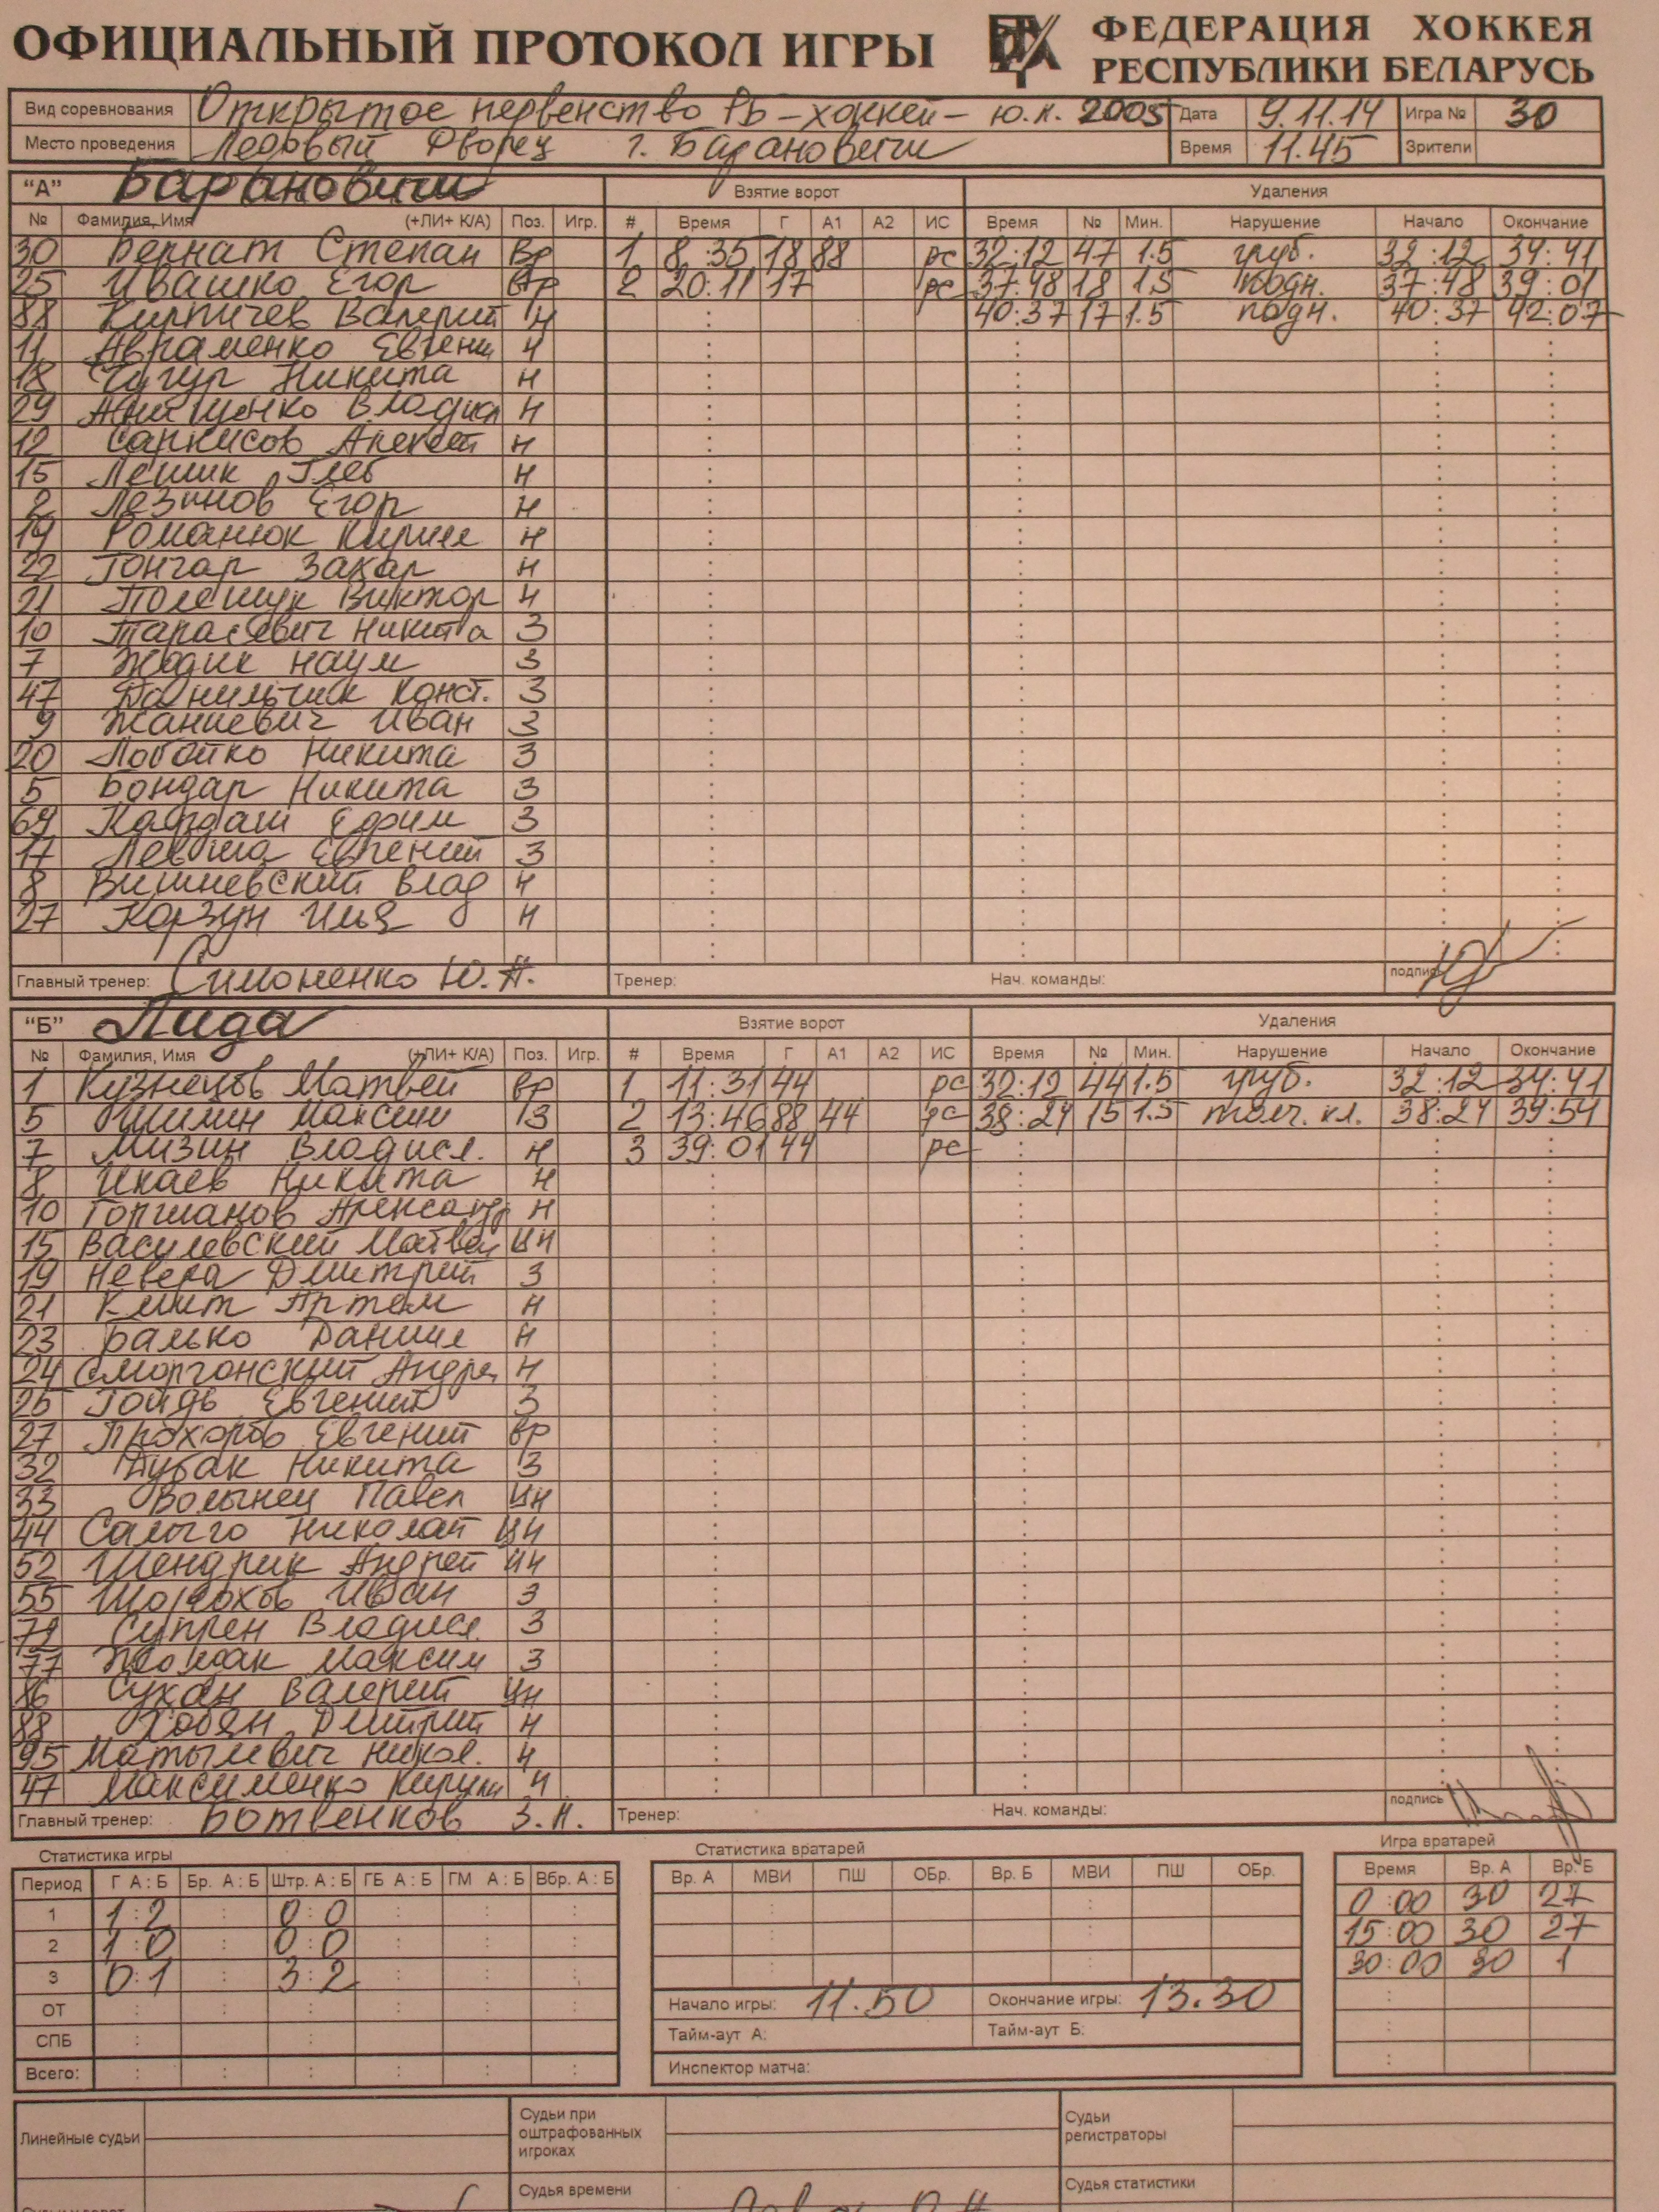 ОФИЦИАЛЬНЫЙ ПРОТОКОЛ ИГРЫ
ФЕДЕРАЦИЯ ХОККЕЯ
РЕСПУБЛИКИ БЕЛАРУСЬ
Вид соревнования Открытое первенство РБ-хоккей- ю.н. 2005 Дата 9.11.14 Игра № 30
Место проведения Ледовый Дворец г. Барановичи Время 11.45 Зрители
"А" Барановичи Взятие ворот Удаления
№ Фамилия, Имя (+ЛИ+ К/А) Поз. Игр. # Время Г А1 А2 ИС Время № Мин. Нарушение Начало Окончание
30 Бернат Степан Вр 1 8:35 18 88 рс 32:12 47 1.5 груб. 32:12 34:41
25 Ивашко Егор Вр 2 20:11 17 рс 37:48 18 1.5 подн. 37:48 39:01
88 Кирпичев Валерий Н 40:37 17 1.5 подн. 40:37 42:07
11 Авраменко Евгени Н
18 Чугур Никита Н
29 Влодисл Н
12 Саркисов Алексей Н
15 Лешик Глеб Н
2 Лезинов Егор Н
19 Романюк Кирилл Н
22 Гончар Захар Н
21 Полещук Виктор Н
10 Тарасевич Никита З
7 Жодик Наум З
47 Данильчик Конст. З
9 Жаниевич Иван З
20 Лобойко Никита З
5 Бондар Никита З
69 Кардаш Ефим З
17 Левша Евгений З
8 Вишневский Влад Н
27 Корзун Илья Н
Главный тренер: Симоненко Ю.Н. Тренер: Нач. команды: подпись
"Б" Лида Взятие ворот Удаления
№ Фамилия, Имя (+ЛИ+ К/А) Поз. Игр. # Время Г А1 А2 ИС Время № Мин. Нарушение Начало Окончание
1 Кузнецов Матвей вр 1 11:31 44 рс 32:12 44 1.5 груб. 32:12 34:41
5 Шилин Максим З 2 13:46 88 44 рс 38:24 15 1.5 толч. кл. 38:24 39:54
7 Мизин Владисл. Н 3 39:01 44 рс
8 Икаев Никита Н
10 Горшанов Александр Н
15 Василевский Матвей ЦН
19 Невера Дмитрий З
21 Клит Артем Н
23 Балько Даниил Н
24 Сморгонский Андрей Н
26 Гойдь Евгений З
27 Прохоров Евгений вр
32 Дубак Никита З
33 Волынец Павел ЦН
44 Салыго Николай ЦН
52 Шендрик Андрей ЦН
55 Шорохов Иван З
72 Супрен Владисл. З
77 Максим З
86 Сукач Валерий ЦН
88 Хобян Дмитрий Н
95 Матылевич Никол. Н
47 Максименко Кирилл Н
Главный тренер: Ботвенков З.Н. Тренер: Нач. команды: подпись
Статистика игры Статистика вратарей Игра вратарей
Период Г А : Б Бр. А : Б Штр. А : Б ГБ А : Б ГМ А : Б Вбр. А : Б Вр. А МВИ ПШ ОБр. Вр. Б МВИ ПШ ОБр. Время Вр. А Вр. Б
1 1:2 0:0 0:00 30 27
2 1:0 0:0 15:00 30 27
3 0:1 3:2 30:00 30 1
ОТ Начало игры: 11.50 Окончание игры: 13.30
СПБ Тайм-аут А: Тайм-аут Б:
Всего: Инспектор матча:
Линейные судьи Судьи при оштрафованных игроках Судьи регистраторы
Судья времени Судья статистики